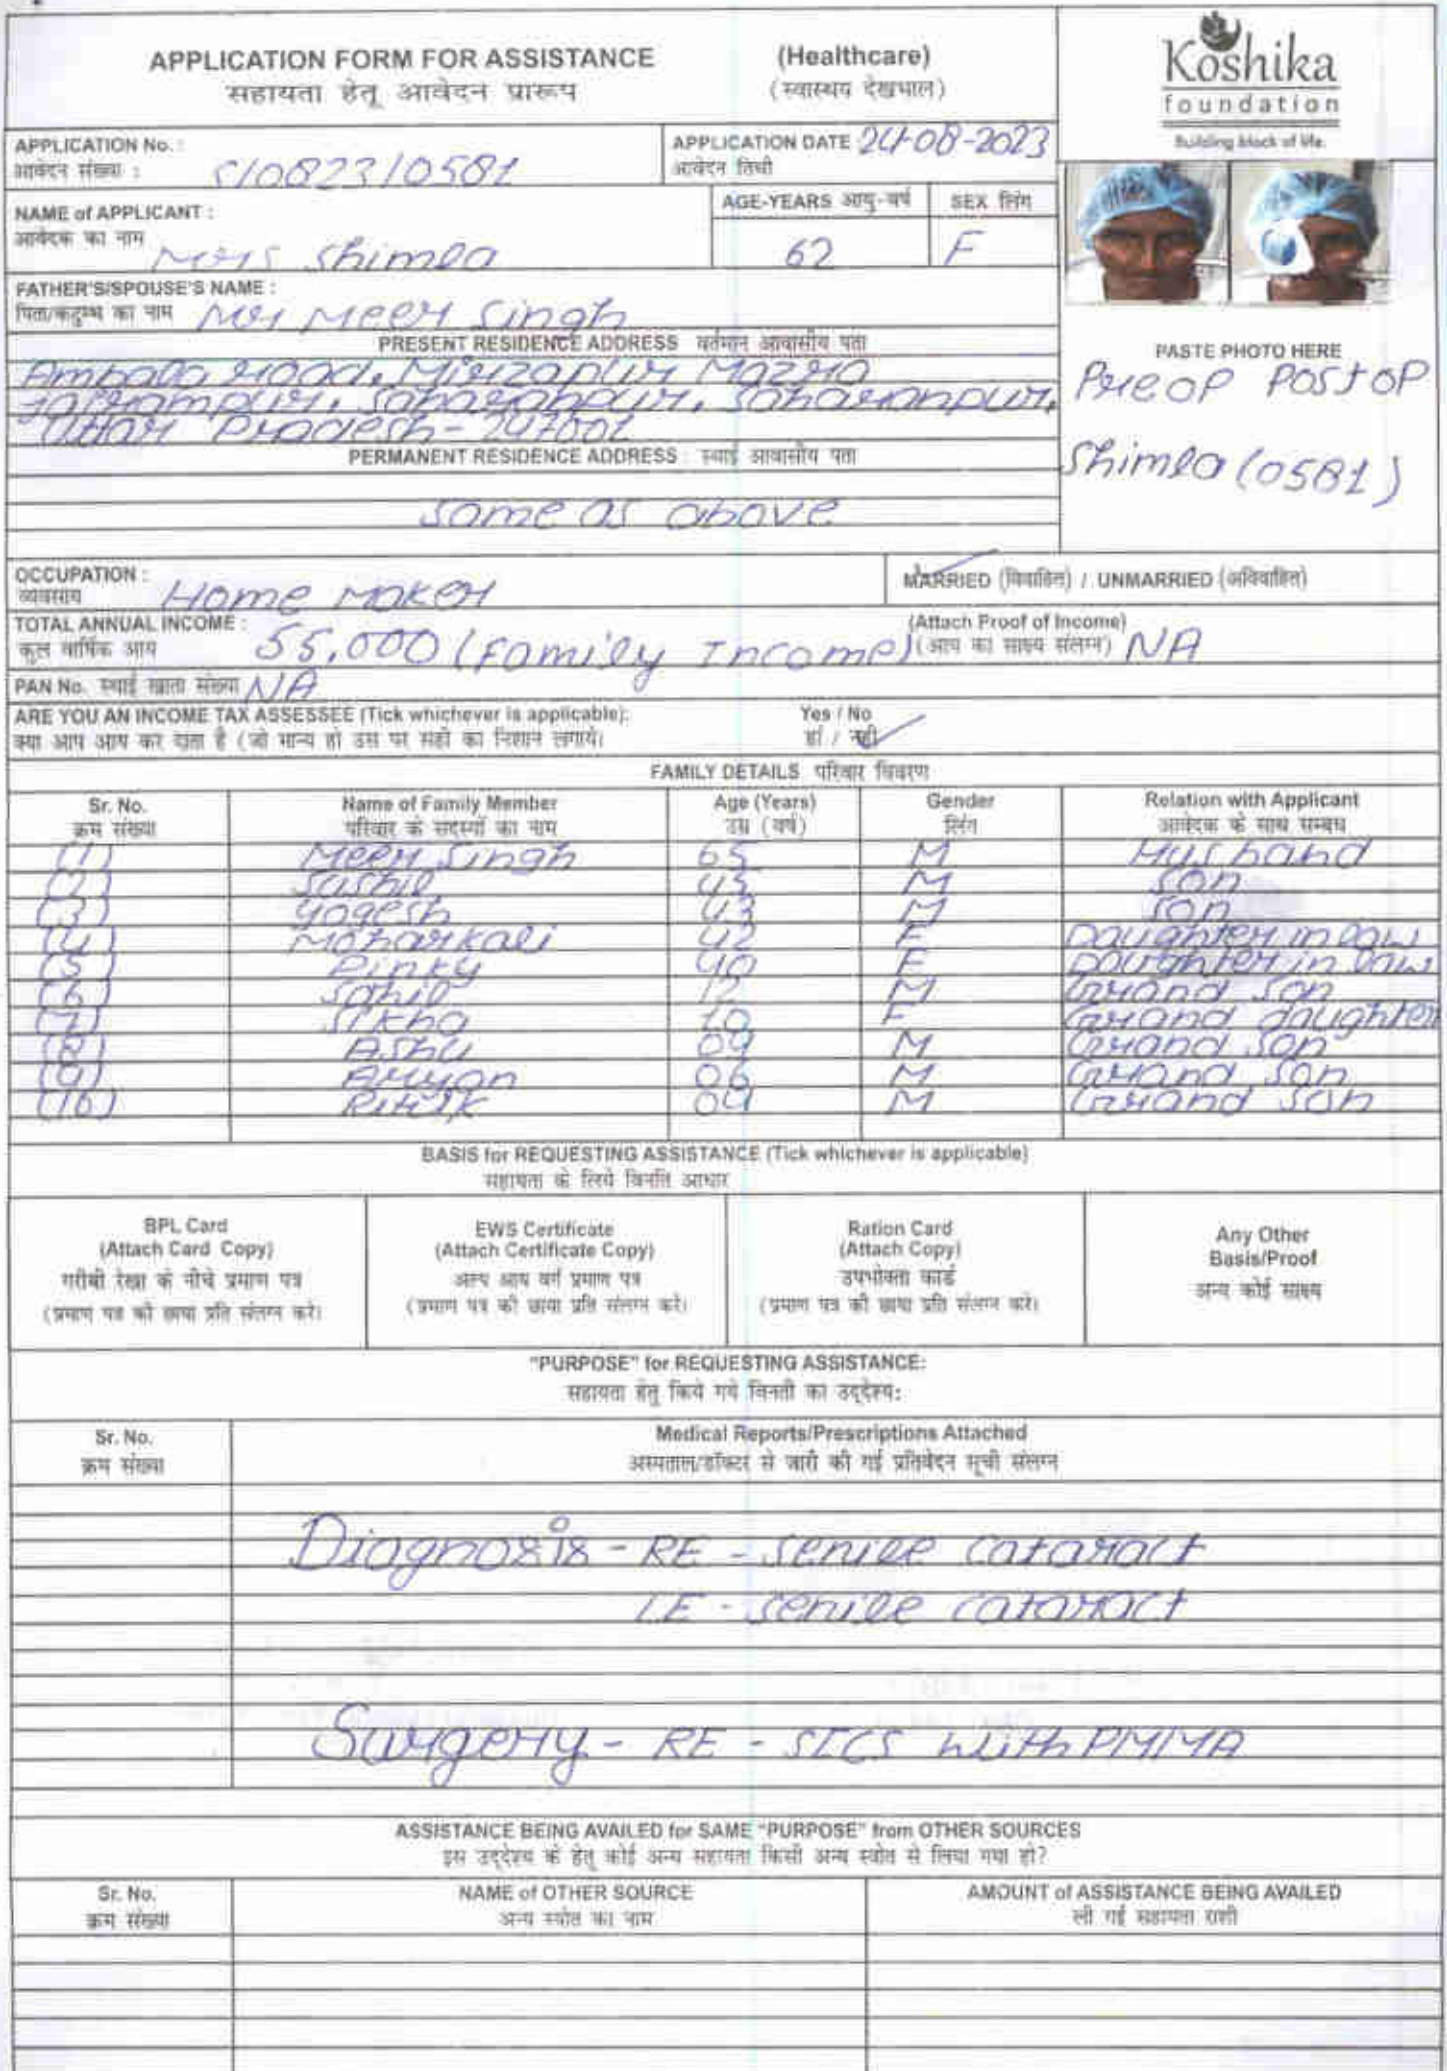 APPLICATION FORM FOR ASSISTANCE (Healthcare)
सहायता हेतू आवेदन प्रारूप (स्वास्थय देखभाल)
Koshika
foundation
Building block of life.
APPLICATION No. :
आवेदन संख्या : S10823/0581
APPLICATION DATE 24-08-2023
आवेदन तिथी
NAME of APPLICANT :
आवेदक का नाम Mrs Shimla
AGE-YEARS आयु-वर्ष 62
SEX लिंग F
FATHER'S/SPOUSE'S NAME :
पिता/कटुम्ब का नाम Mr Meer Singh
PRESENT RESIDENCE ADDRESS वर्तमान आवासीय पता
Ambala road, Mirzapur Mazra
Saharanpur, Saharanpur,
Uttar Pradesh - 247001
PERMANENT RESIDENCE ADDRESS : स्थाई आवासीय पता
same as above
PASTE PHOTO HERE
Pre op Post op
Shimla (0581)
OCCUPATION :
व्यवसाय Home Maker
MARRIED (विवाहित) / UNMARRIED (अविवाहित)
TOTAL ANNUAL INCOME :
कुल वार्षिक आय 55,000 (Family Income)
(Attach Proof of Income)
(आय का साक्ष्य संलग्न) NA
PAN No. स्थाई खाता संख्या NA
ARE YOU AN INCOME TAX ASSESSEE (Tick whichever is applicable): Yes / No
क्या आप आय कर दाता है (जो मान्य हो उस पर सही का निशान लगाये। हां / नही
FAMILY DETAILS परिवार विवरण
Sr. No. Name of Family Member Age (Years) Gender Relation with Applicant
क्रम संख्या परिवार के सदस्यों का नाम उम्र (वर्ष) लिंग आवेदक के साथ सम्बध
(1) Meer Singh 65 M Husband
(2) Sushil 45 M Son
(3) Yogesh 43 M Son
(4) Moharkali 42 F Daughter in law
(5) Pinky 40 F Daughter in law
(6) Sahil 12 M Grand Son
(7) Sikha 10 F Grand daughter
(8) Ashu 09 M Grand Son
(9) Aryan 06 M Grand Son
(10) Ritik 04 M Grand Son
BASIS for REQUESTING ASSISTANCE (Tick whichever is applicable)
सहायता के लिये विनति आधार
BPL Card
(Attach Card Copy)
गरीबी रेखा के नीचे प्रमाण पत्र
(प्रमाण पत्र की छाया प्रति संलग्न करे।
EWS Certificate
(Attach Certificate Copy)
अल्प आय वर्ग प्रमाण पत्र
(प्रमाण पत्र की छाया प्रति संलग्न करे।
Ration Card
(Attach Copy)
उपभोक्ता कार्ड
(प्रमाण पत्र की छाया प्रति संलग्न करे।
Any Other
Basis/Proof
अन्य कोई साक्ष्य
"PURPOSE" for REQUESTING ASSISTANCE:
सहायता हेतु किये गये विनती का उद्देश्य:
Sr. No. Medical Reports/Prescriptions Attached
क्रम संख्या अस्पताल/डॉक्टर से जारी की गई प्रतिवेदन सूची संलग्न
Diagnosis - RE - senile cataract
LE - senile cataract
Surgery - RE - SICS with PMMA
ASSISTANCE BEING AVAILED for SAME "PURPOSE" from OTHER SOURCES
इस उद्देश्य के हेतु कोई अन्य सहायता किसी अन्य स्त्रोत से लिया गया हो?
Sr. No. NAME of OTHER SOURCE AMOUNT of ASSISTANCE BEING AVAILED
क्रम संख्या अन्य स्त्रोत का नाम ली गई सहायता राशी